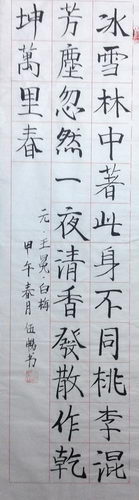 冰雪林中著此身不同桃李混
芳塵忽然一夜清香發散作乾
坤萬里春
元王冕·白梅
甲午春月伍鵬书